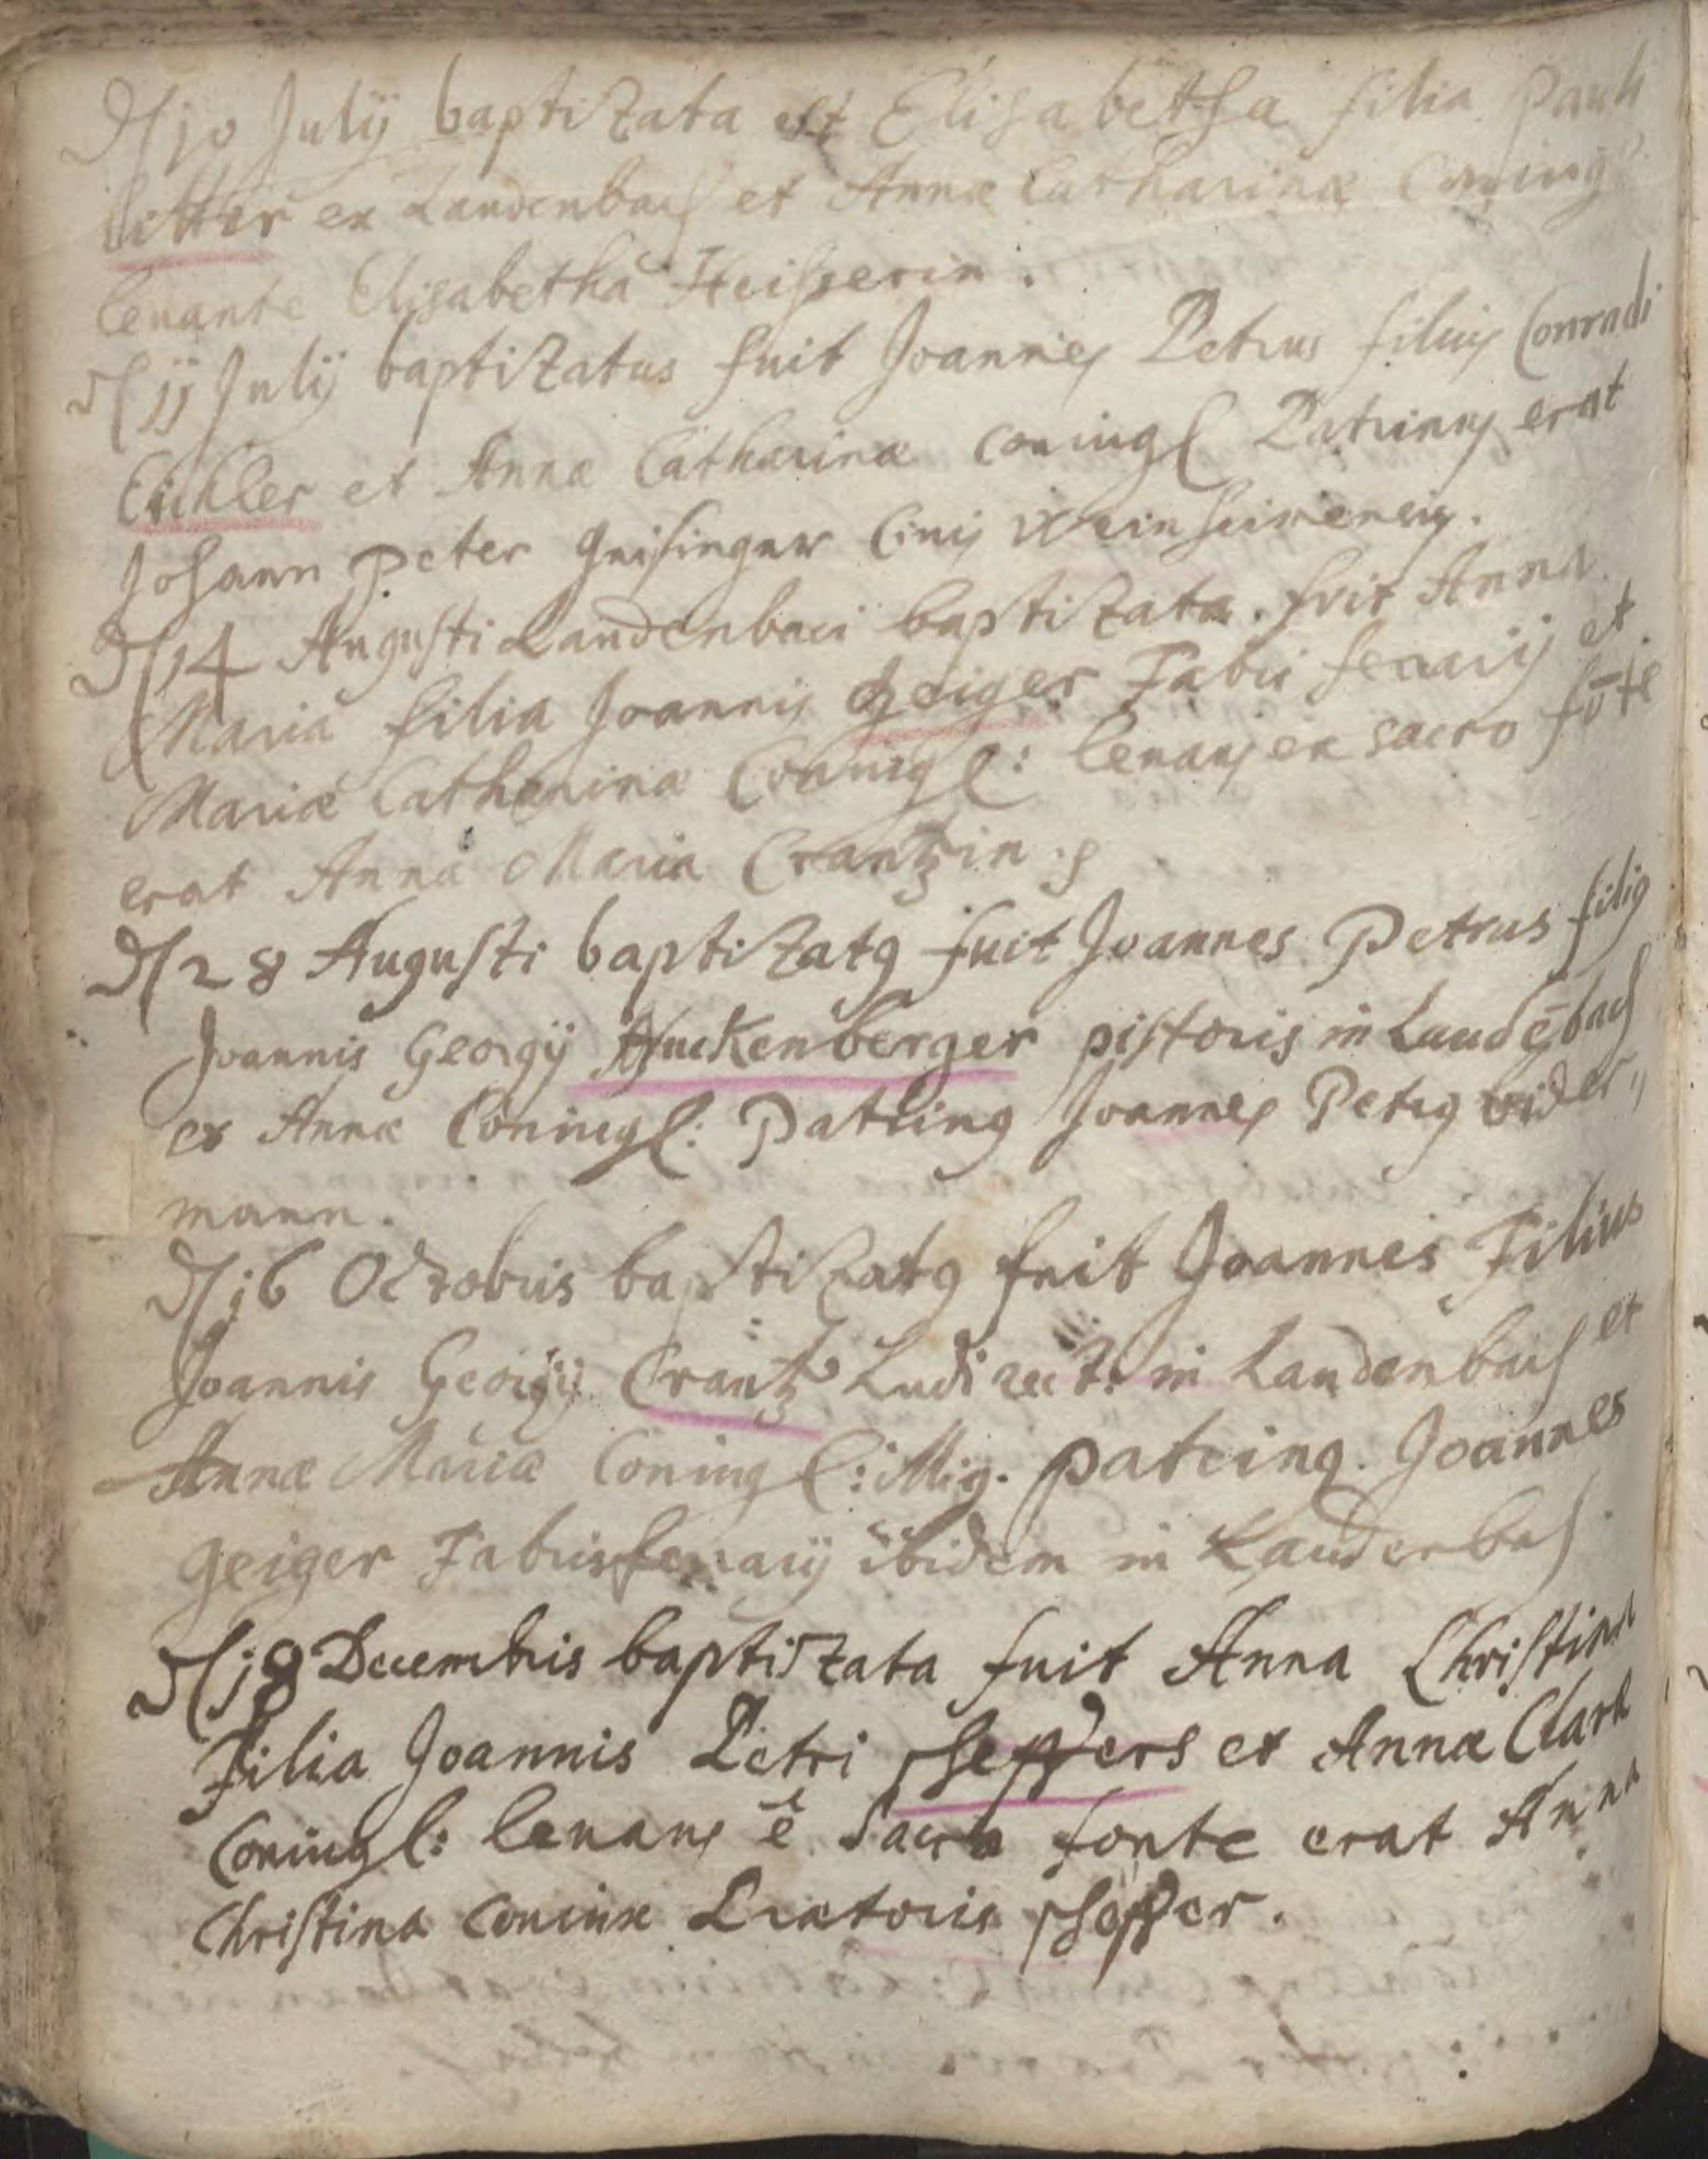 d 10 Julij baptizata est Elisabetha filia Pauli
ex Laudenbach et Annæ Catharinæ Conjug
levante Elisabetha
d 11 Julij baptizatus fuit Joannes Petrus filius Conradi
Eichler et Annæ Catharinæ coniugl Patrinus erat
Johann Peter Geisinger Civis Weinheimensis.
d 14 Augusti Laudenbaci baptizata fuit Anna
Maria filia Joannis Geiger Fabri ferarij et
Mariæ Catharinæ Coniugl: levans ex sacro fōte
erat Anna Maria Crantzin.
d 28 Augusti baptizatg fuit Joannes Petrus filig
Joannis Georgij Huckenberger pistoris in Laudēbach
et Annæ Coniugl: Patring Joannes Petrg wider„
mann.
d 16 Octobris baptizatg fuit Joannes Filius
Joannis Georgij Crantz Ludi rect: in Laudenbach et
Annæ Mariæ Coniugl: patring. Joannes
Geiger Fabrisferrarij ibidem in Laudenbach
d 18 Decembris baptizata fuit Anna Christina
Filia Joannis Petri scheffers et Annæ Claræ
Coniugl: levans è Sacro fonte erat Anna
Christina Coniux Prætoris scheffer.